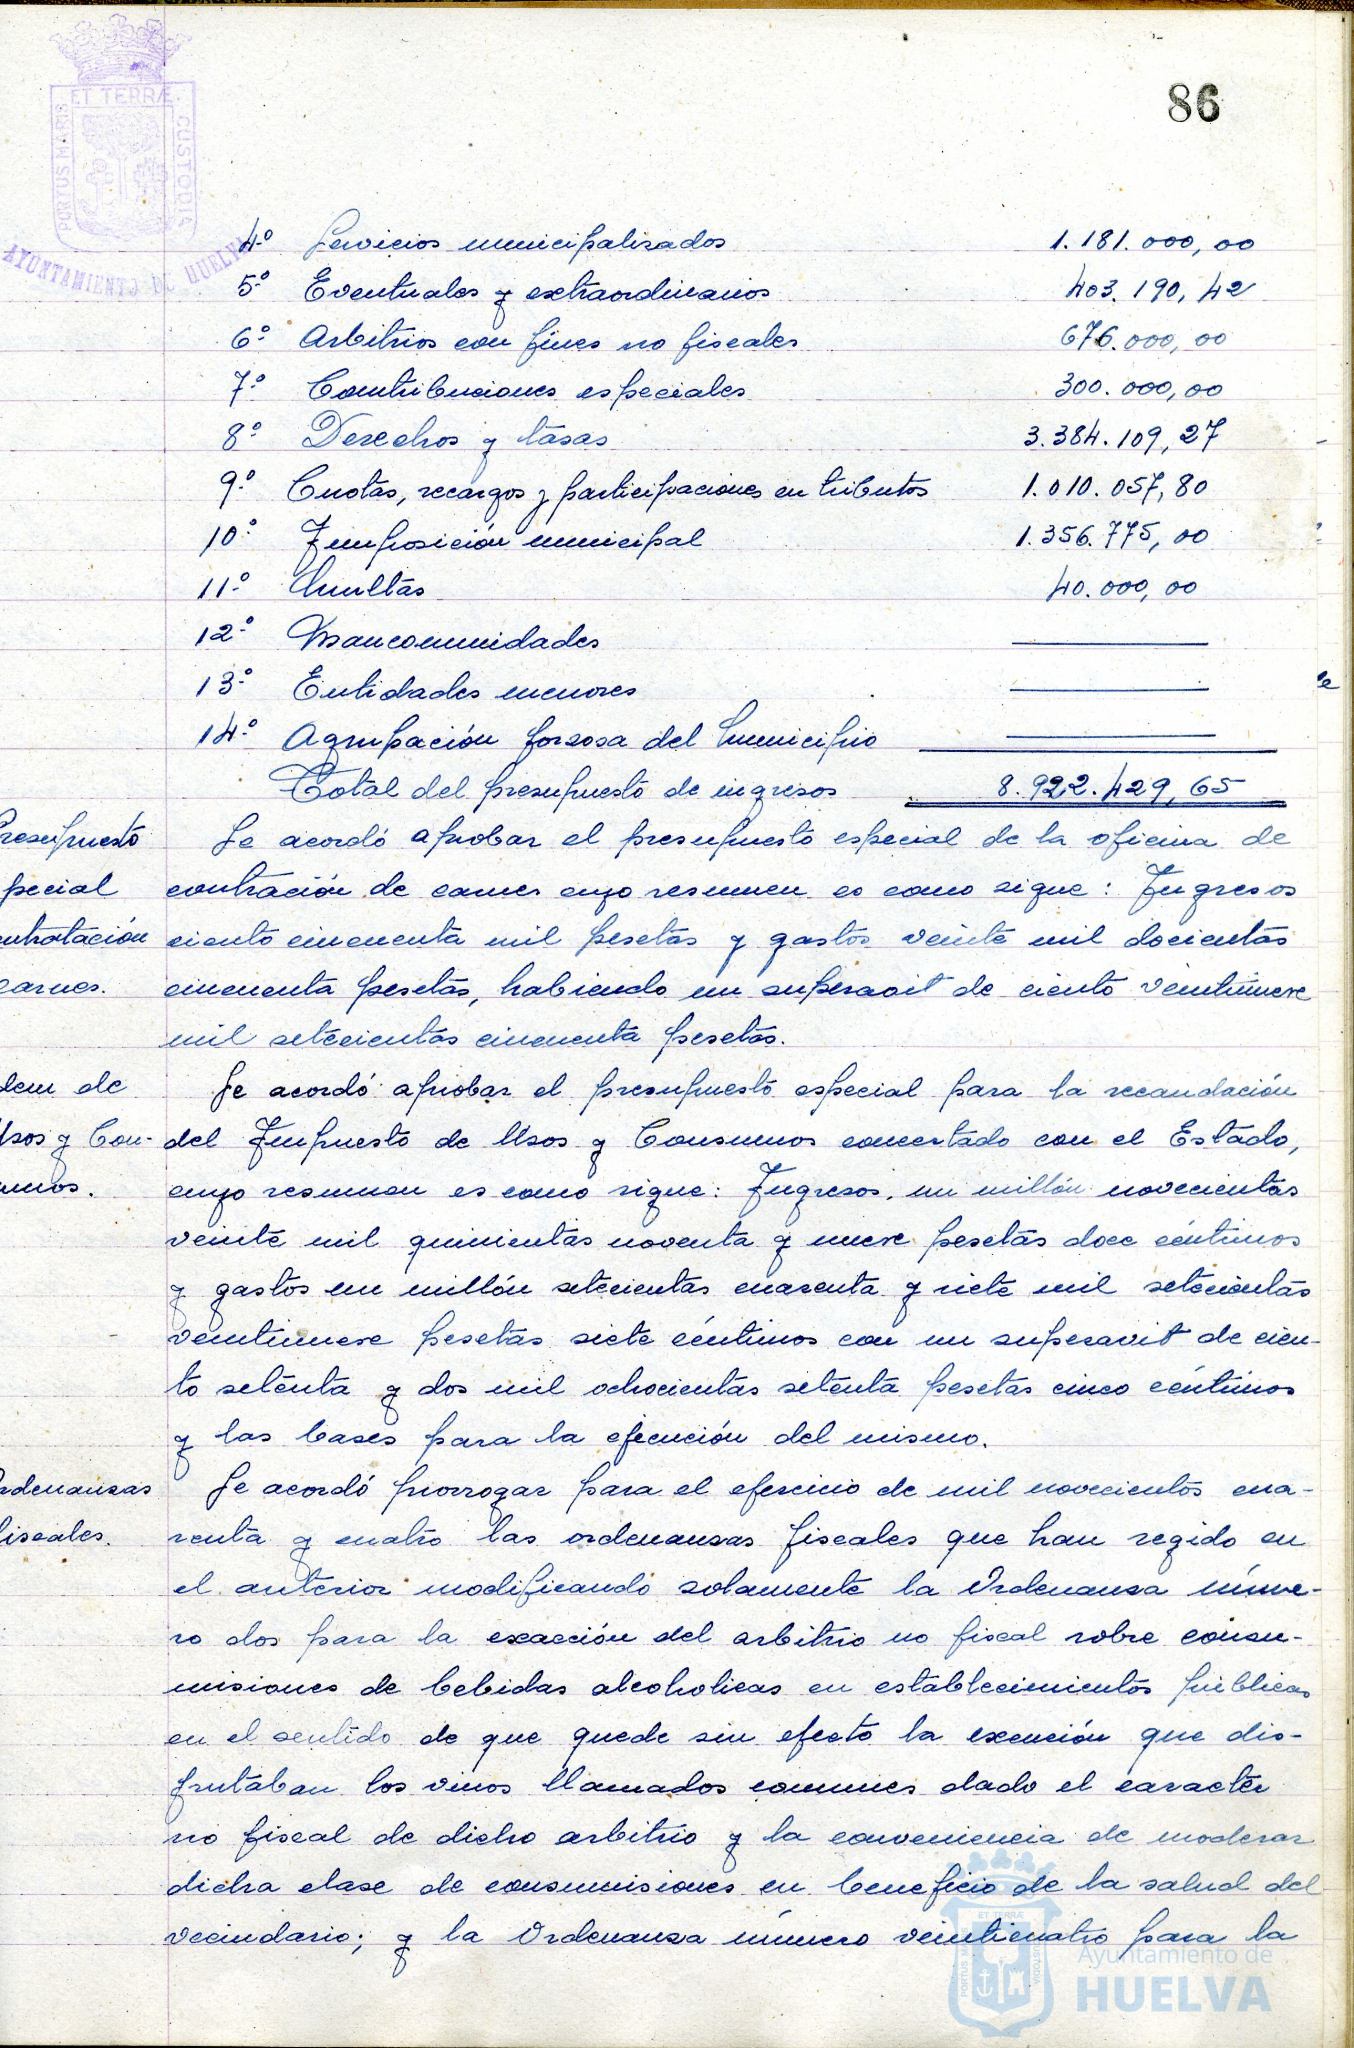 86
ET TERRÆ
PORTUS MARIS
CUSTODIA
AYUNTAMIENTO DE HUELVA
4º Servicios municipalizados 1.181.000,00
5º Eventuales y extraordinarios 403.190,42
6º Arbitrios con fines no fiscales 676.000,00
7º Contribuciones especiales 300.000,00
8º Derechos y tasas 3.384.109,27
9º Cuotas, recargos y participaciones en tributos 1.010.057,80
10º Imposición municipal 1.356.775,00
11º Multas 40.000,00
12º Mancomunidades
13º Entidades menores
14º Agrupación forzosa del Municipio
Total del presupuesto de ingresos 8.922.429,65
resupuesto
pecial
ntratación
carnes.
Se acordó aprobar el presupuesto especial de la oficina de
contración de carnes cuyo resumen es como sigue: Ingresos
ciento cincuenta mil pesetas y gastos veinte mil docientas
cincuenta pesetas, habiendo un superavit de ciento veintinueve
mil setecientas cincuenta pesetas.
dem de
Usos y Con-
umos.
Se acordó aprobar el presupuesto especial para la recaudación
del Impuesto de Usos y Consumos concertado con el Estado,
cuyo resumen es como sigue: Ingresos, un millón novecientas
veinte mil quinientas noventa y nueve pesetas doce céntimos
y gastos un millón setecientas cuarenta y siete mil setecientas
veintinueve pesetas siete céntimos con un superavit de cien-
to setenta y dos mil ochocientas setenta pesetas cinco céntimos
y las bases para la ejecución del mismo.
rdenanzas
fiscales.
Se acordó prorrogar para el ejercicio de mil novecientos cua-
renta y cuatro las ordenanzas fiscales que han regido en
el anterior modificando solamente la Ordenanza núme-
ro dos para la exacción del arbitrio no fiscal sobre consu-
misiones de bebidas alcoholicas en establecimientos públicos
en el sentido de que quede sin efecto la exención que dis-
frutaban los vinos llamados comunes dado el caracter
no fiscal de dicho arbitrio y la conveniencia de moderar
dicha clase de consumisiones en beneficio de la salud del
vecindario; y la Ordenanza número veinticuatro para la
Ayuntamiento de
HUELVA